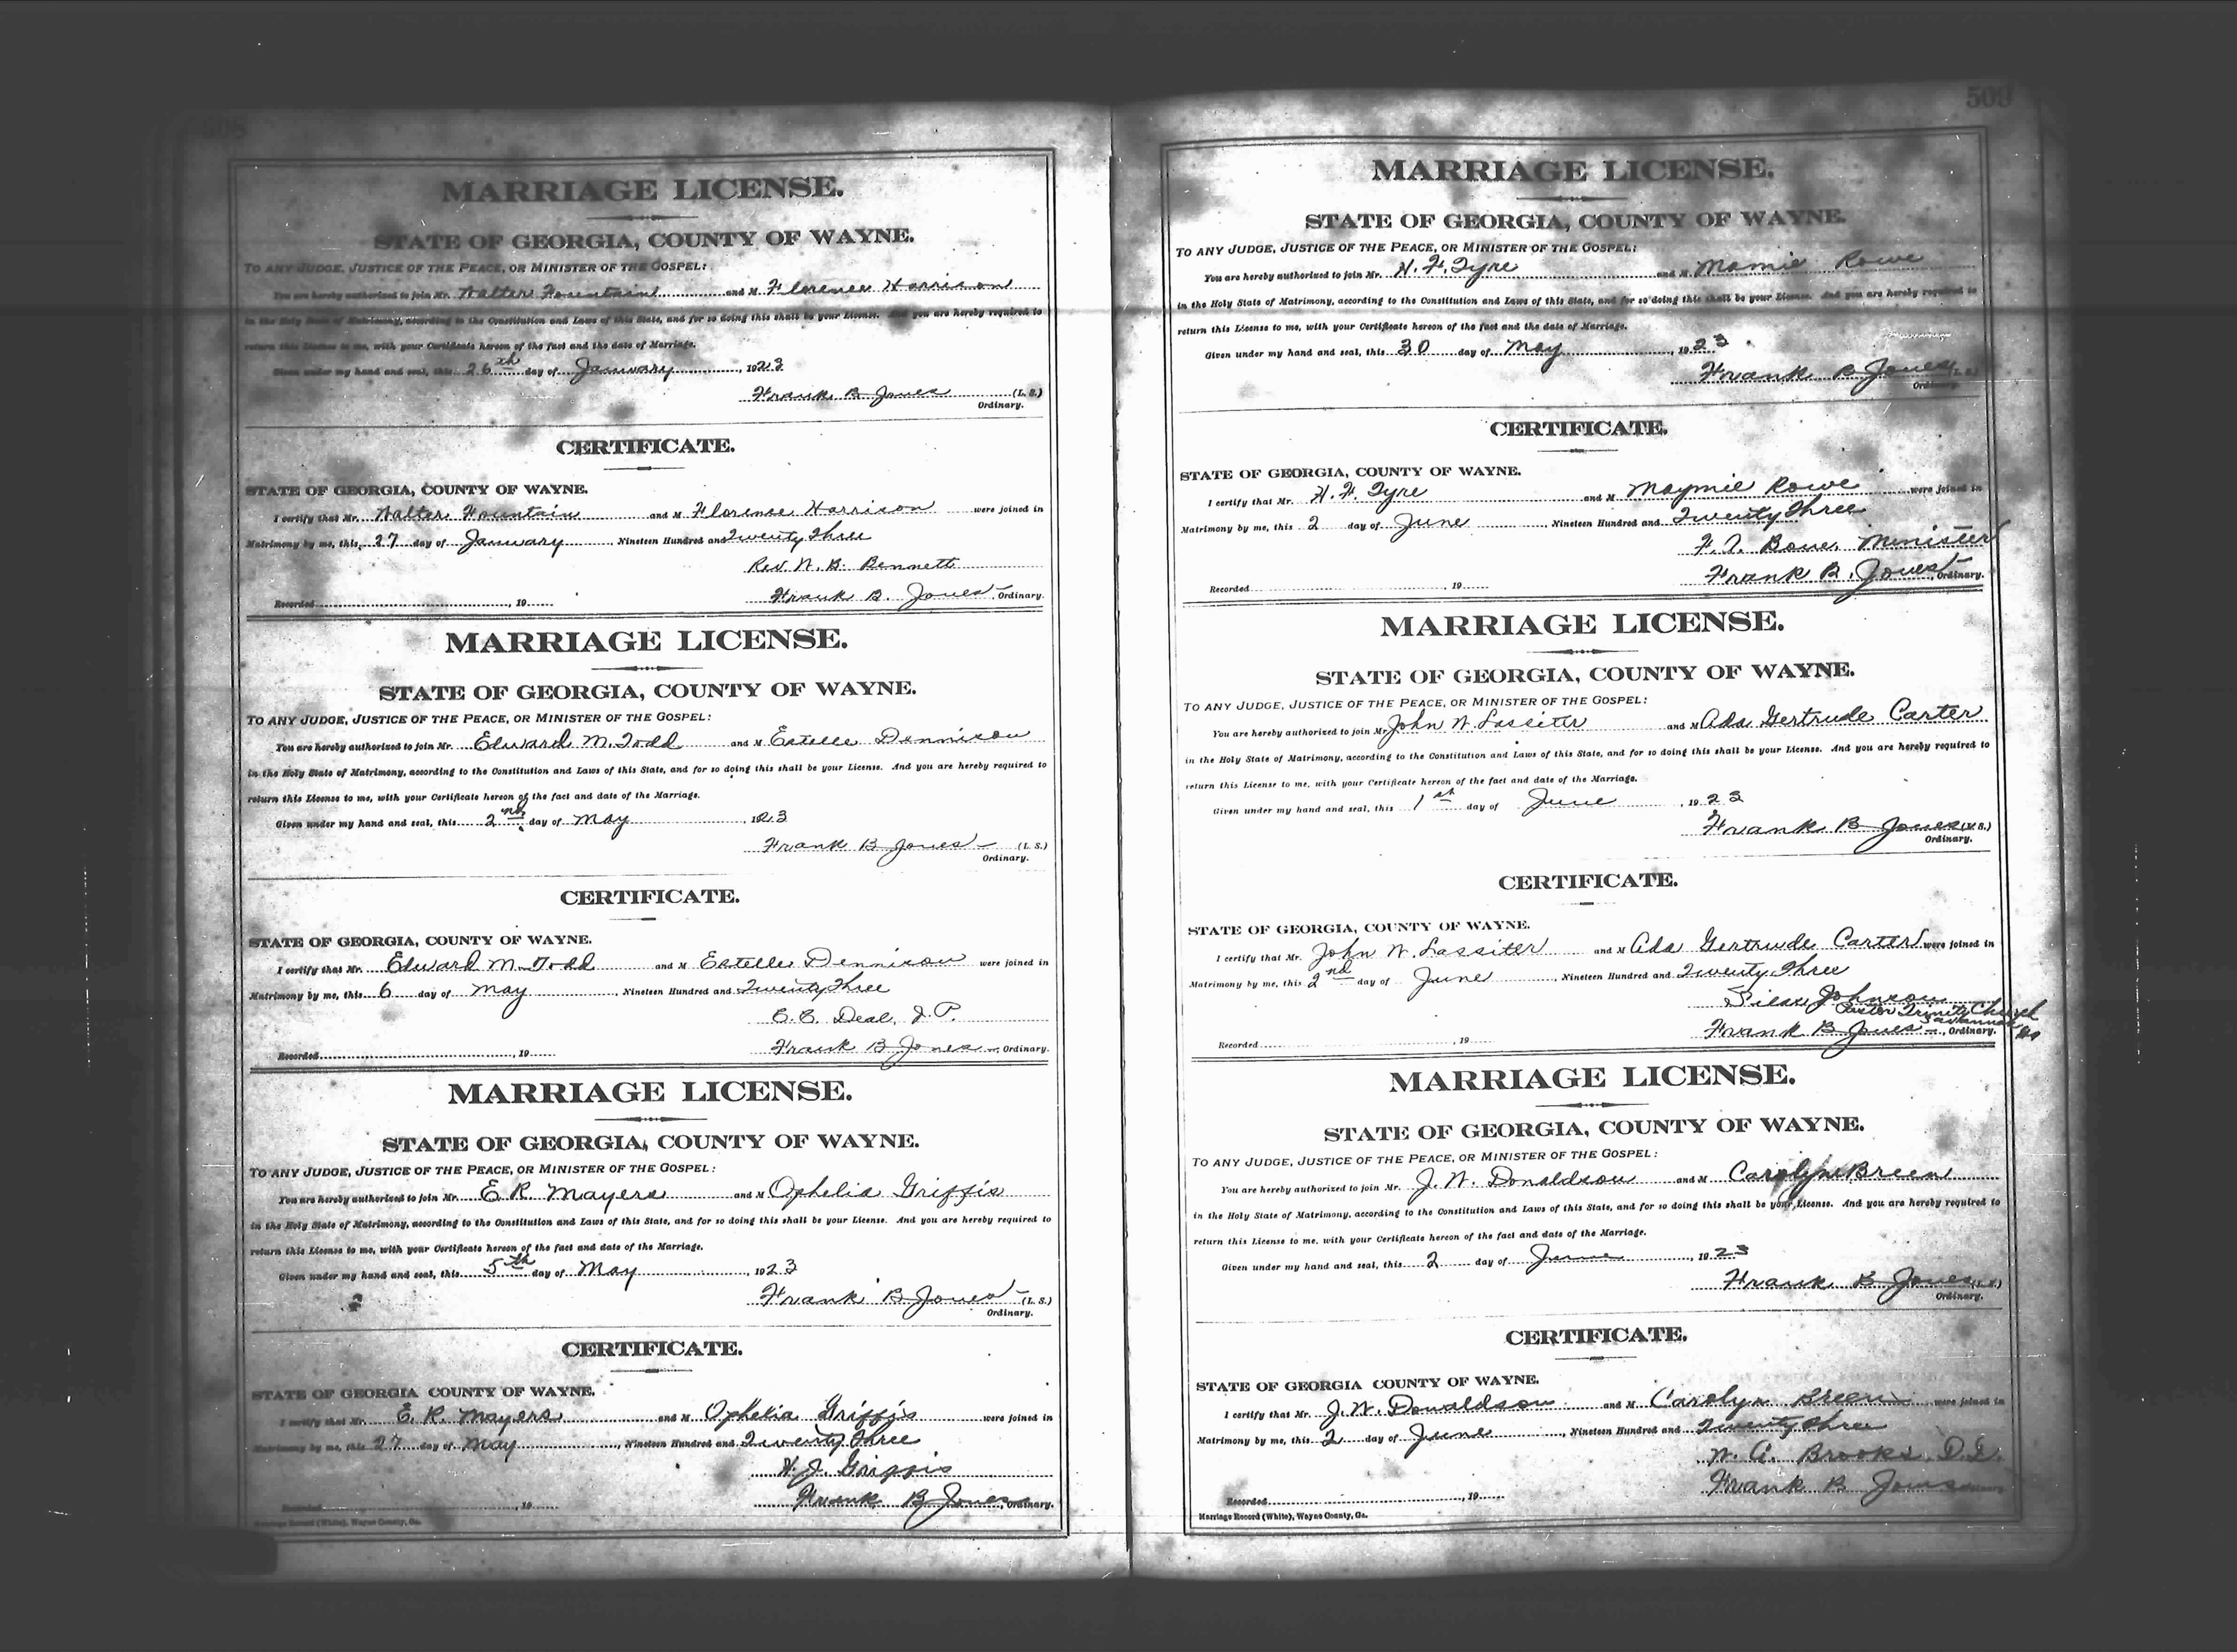 508
MARRIAGE LICENSE.
STATE OF GEORGIA, COUNTY OF WAYNE.
TO ANY JUDGE, JUSTICE OF THE PEACE, OR MINISTER OF THE GOSPEL:
You are hereby authorized to join Mr. Walter Fountain and M Florence Harrison
in the Holy State of Matrimony, according to the Constitution and Laws of this State, and for so doing this shall be your License. And you are hereby required to
return this License to me, with your Certificate hereon of the fact and the date of Marriage.
Given under my hand and seal, this 26th day of January, 1923
Frank B Jones (L. S.)
Ordinary.
CERTIFICATE.
STATE OF GEORGIA, COUNTY OF WAYNE.
I certify that Mr. Walter Fountain and M Florence Harrison were joined in
Matrimony by me, this 27 day of January, Nineteen Hundred and Twenty Three
Rev. N. B. Bennett
Recorded , 19 Frank B. Jones, Ordinary.
MARRIAGE LICENSE.
STATE OF GEORGIA, COUNTY OF WAYNE.
TO ANY JUDGE, JUSTICE OF THE PEACE, OR MINISTER OF THE GOSPEL:
You are hereby authorized to join Mr. Edward M. Todd and M Estelle Dennison
in the Holy State of Matrimony, according to the Constitution and Laws of this State, and for so doing this shall be your License. And you are hereby required to
return this License to me, with your Certificate hereon of the fact and date of the Marriage.
Given under my hand and seal, this 2nd day of May, 1923
Frank B Jones (L. S.)
Ordinary.
CERTIFICATE.
STATE OF GEORGIA, COUNTY OF WAYNE.
I certify that Mr. Edward M. Todd and M Estelle Dennison were joined in
Matrimony by me, this 6 day of May, Nineteen Hundred and Twenty Three
E. E. Deal, J. P.
Recorded , 19 Frank B Jones, Ordinary.
MARRIAGE LICENSE.
STATE OF GEORGIA, COUNTY OF WAYNE.
TO ANY JUDGE, JUSTICE OF THE PEACE, OR MINISTER OF THE GOSPEL:
You are hereby authorized to join Mr. E R Mayers and M Ophelia Griffis
in the Holy State of Matrimony, according to the Constitution and Laws of this State, and for so doing this shall be your License. And you are hereby required to
return this License to me, with your Certificate hereon of the fact and date of the Marriage.
Given under my hand and seal, this 5th day of May, 1923
Frank B Jones (L. S.)
Ordinary.
CERTIFICATE.
STATE OF GEORGIA COUNTY OF WAYNE.
I certify that Mr. E. R. Mayers and M Ophelia Griffis were joined in
Matrimony by me, this 27 day of May, Nineteen Hundred and Twenty Three
H. J. Griffis
Recorded , 19 Frank B Jones, Ordinary.
Marriage Record (White), Wayne County, Ga.
509
MARRIAGE LICENSE.
STATE OF GEORGIA, COUNTY OF WAYNE.
TO ANY JUDGE, JUSTICE OF THE PEACE, OR MINISTER OF THE GOSPEL:
You are hereby authorized to join Mr. H. F. Tyre and M Mamie Rowe
in the Holy State of Matrimony, according to the Constitution and Laws of this State, and for so doing this shall be your License. And you are hereby required to
return this License to me, with your Certificate hereon of the fact and the date of Marriage.
Given under my hand and seal, this 30 day of May, 1923
Frank B Jones (L. S.)
Ordinary.
CERTIFICATE.
STATE OF GEORGIA, COUNTY OF WAYNE.
I certify that Mr. H. F. Tyre and M Maymie Rowe were joined in
Matrimony by me, this 2 day of June, Nineteen Hundred and Twenty Three
Minister
Recorded , 19 Frank B. Jones, Ordinary.
MARRIAGE LICENSE.
STATE OF GEORGIA, COUNTY OF WAYNE.
TO ANY JUDGE, JUSTICE OF THE PEACE, OR MINISTER OF THE GOSPEL:
You are hereby authorized to join Mr. John W. Lassiter and M Ada Gertrude Carter
in the Holy State of Matrimony, according to the Constitution and Laws of this State, and for so doing this shall be your License. And you are hereby required to
return this License to me, with your Certificate hereon of the fact and date of the Marriage.
Given under my hand and seal, this 1st day of June, 1923
Frank B Jones (L. S.)
Ordinary.
CERTIFICATE.
STATE OF GEORGIA, COUNTY OF WAYNE.
I certify that Mr. John W. Lassiter and M Ada Gertrude Carter were joined in
Matrimony by me, this 2nd day of June, Nineteen Hundred and Twenty Three
Silas Johnson
Pastor Trinity Church
Savannah Ga
Recorded , 19 Frank B Jones, Ordinary.
MARRIAGE LICENSE.
STATE OF GEORGIA, COUNTY OF WAYNE.
TO ANY JUDGE, JUSTICE OF THE PEACE, OR MINISTER OF THE GOSPEL:
You are hereby authorized to join Mr. J. W. Donaldson and M Carolyn Breen
in the Holy State of Matrimony, according to the Constitution and Laws of this State, and for so doing this shall be your License. And you are hereby required to
return this License to me, with your Certificate hereon of the fact and date of the Marriage.
Given under my hand and seal, this 2 day of June, 1923
Frank B Jones (L. S.)
Ordinary.
CERTIFICATE.
STATE OF GEORGIA COUNTY OF WAYNE.
I certify that Mr. J. W. Donaldson and M Carolyn Breen were joined in
Matrimony by me, this 2 day of June, Nineteen Hundred and Twenty Three
W. A. Brooks
Recorded , 19 Frank B Jones Ordinary.
Marriage Record (White), Wayne County, Ga.